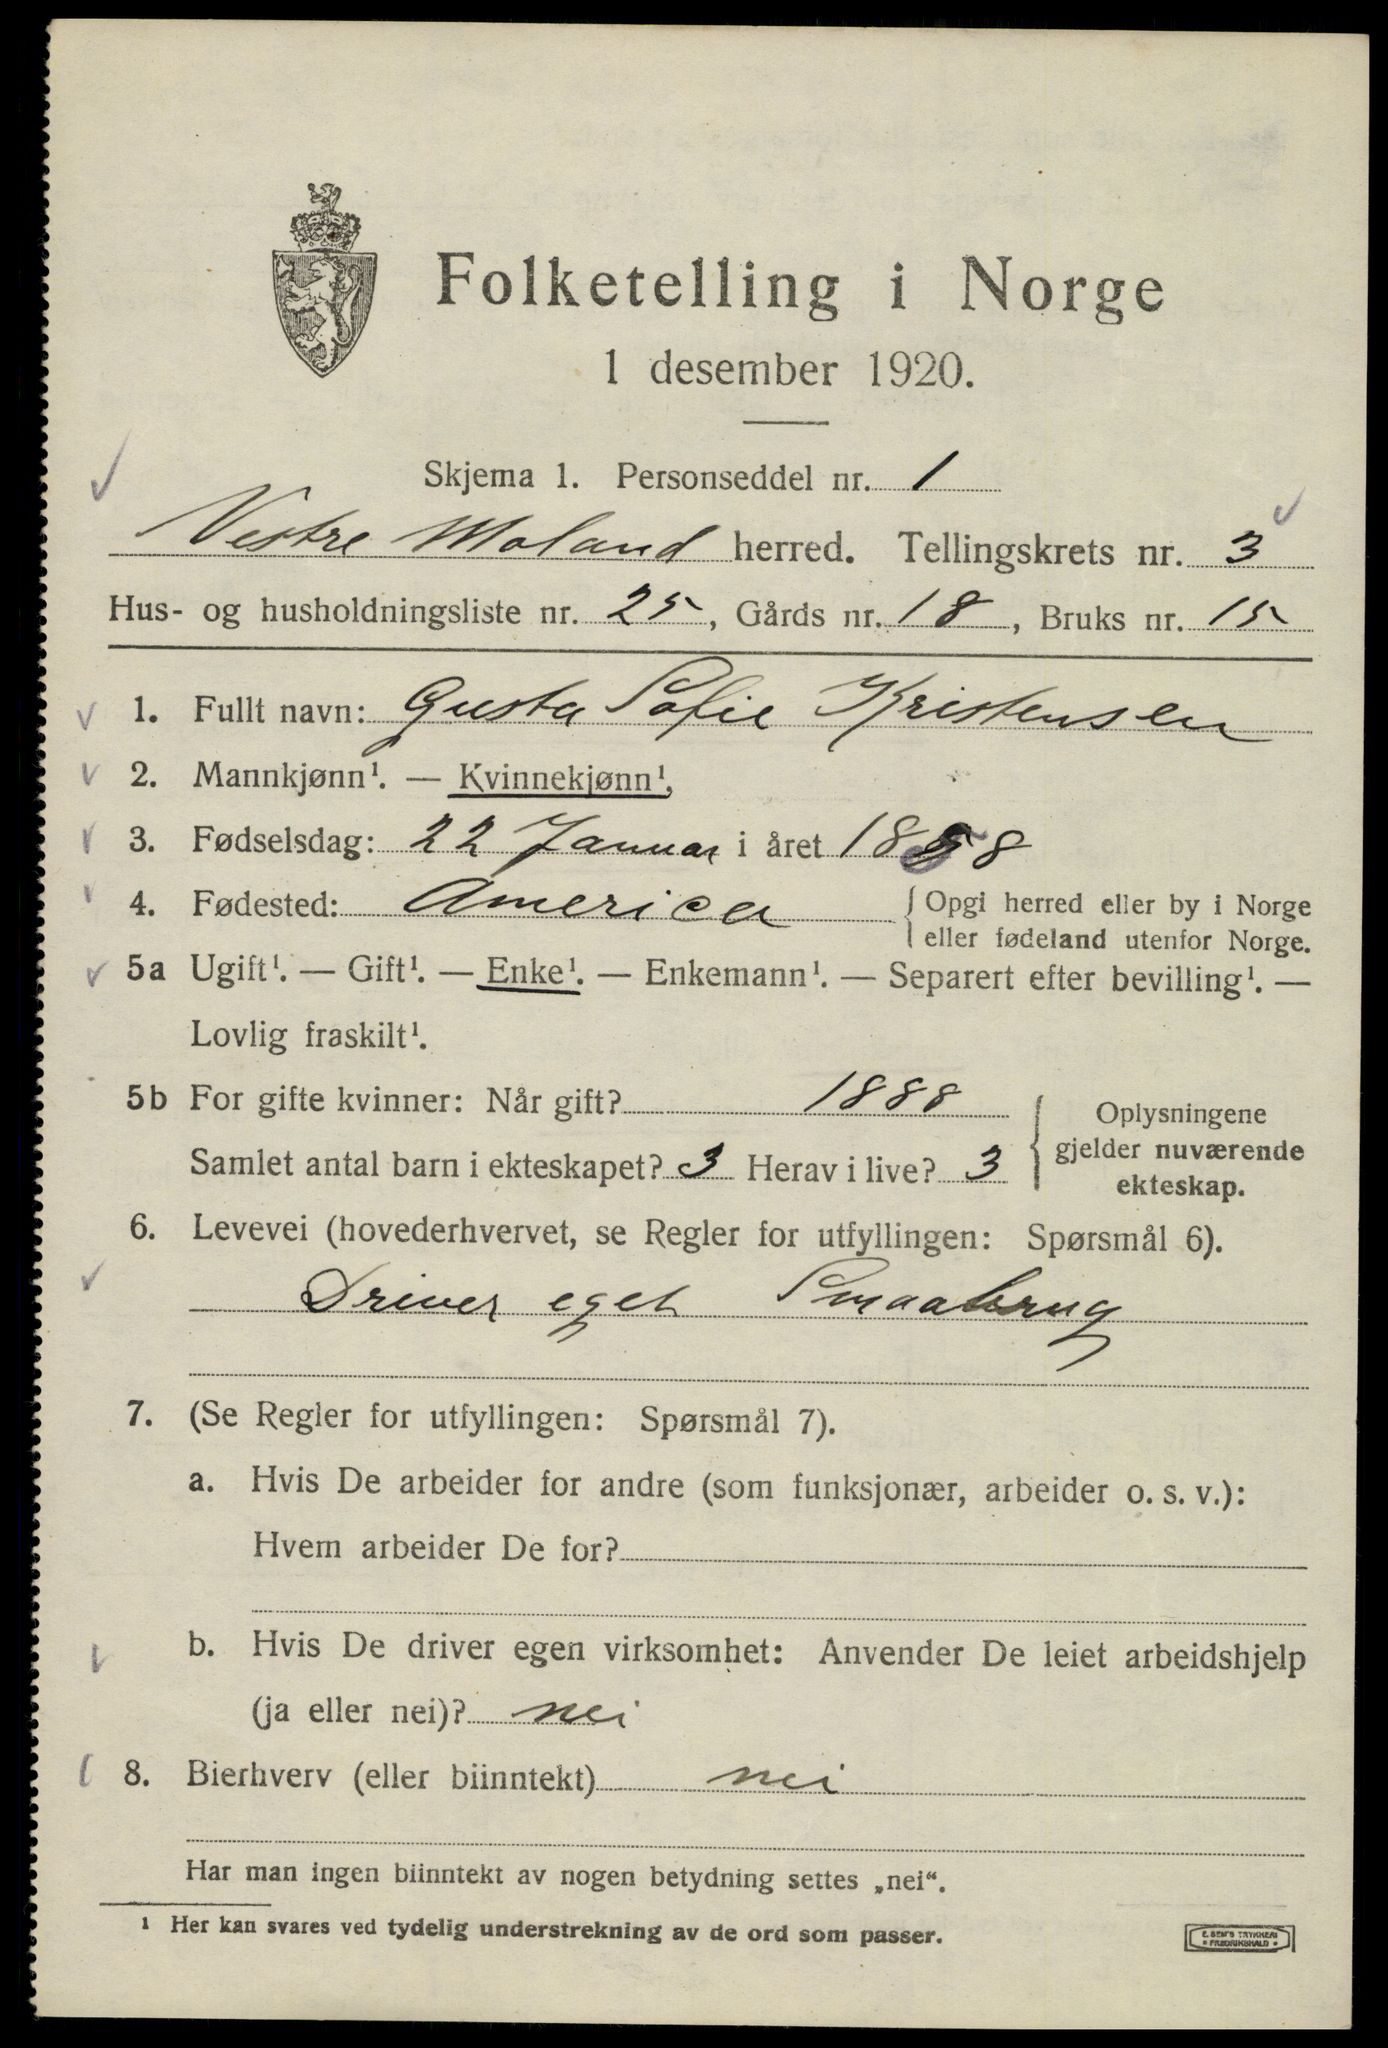 Folketelling i Norge
1 desember 1920.
Skjema 1. Personseddel nr. 1
Vestre Moland herred. Tellingskrets nr. 3
Hus- og husholdningsliste nr. 25, Gårds nr. 18, Bruks nr. 15
1. Fullt navn: Gusta Sofie Kristensen
2. Mannkjønn¹. — Kvinnekjønn¹.
3. Fødselsdag: 22 Januar i året 1858
4. Fødested: America { Opgi herred eller by i Norge
eller fødeland utenfor Norge.
5a Ugift¹. — Gift¹. — Enke¹. — Enkemann¹. — Separert efter bevilling¹. —
Lovlig fraskilt¹.
5b For gifte kvinner: Når gift? 1888
Samlet antal barn i ekteskapet? 3 Herav i live? 3
{ Oplysningene
gjelder nuværende
ekteskap.
6. Levevei (hovederhvervet, se Regler for utfyllingen: Spørsmål 6).
Driver eget Smaabrug
7. (Se Regler for utfyllingen: Spørsmål 7).
a. Hvis De arbeider for andre (som funksjonær, arbeider o. s. v.):
Hvem arbeider De for?
b. Hvis De driver egen virksomhet: Anvender De leiet arbeidshjelp
(ja eller nei)? nei
8. Bierhverv (eller biinntekt) nei
Har man ingen biinntekt av nogen betydning settes „nei“.
¹ Her kan svares ved tydelig understrekning av de ord som passer.
E. SEM'S TRYKKERI
FREDRIKSHALD